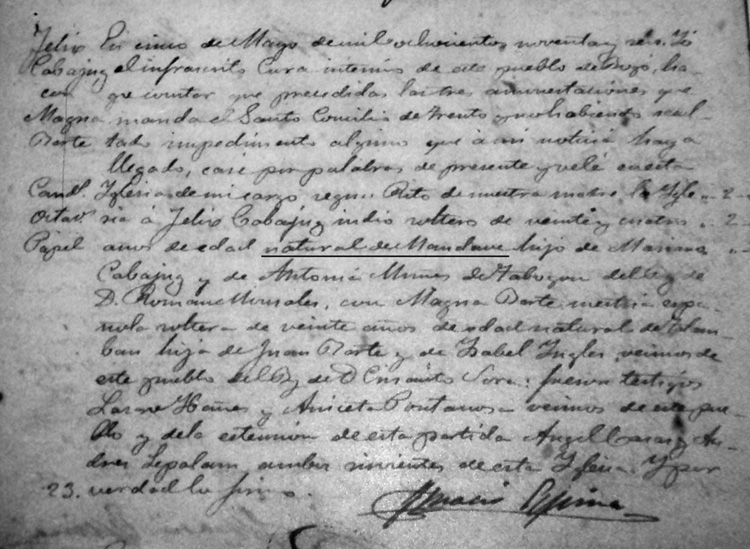 Felix En cinco de Mayo de mil ochocientos noventa y seis. Yó
Cabajug el infrascrito Cura interino de este pueblo de Bogo, ha
con go constar que precedidas las tres amonestaciones que
Magna manda el Santo Concilio de Trento y no habiendo resul-
Darte tado impedimento alguno que á mi noticia haya
llegado, casé por palabras de presente y velé en esta
Cand.l Iglesia de mi cargo segun Rito de nuestra madre la Igle .. - 2 -
sia á Felix Cabajug indio soltero de veinte y cuatro .. - 2
Papel anos de edad natural de Mandaue hijo de Maximo
Cabajug y de Antonia Munes de Tabogon del Bg de
D. Roman Morales, con Magna Darte mestiza espa-
ñola soltera de veinte años de edad natural de
hija de Juan Darte y de Isabel Ingles vecinos de
este pueblo del Bg de D. Sora: fueron testigos
y Aniceta vecinos de este pue-
blo y de la estension de esta partida Angel y An-
dres ambos sirvientes de esta Iglesia. Y por
23. verdad lo firmo.
Ignacio Espina